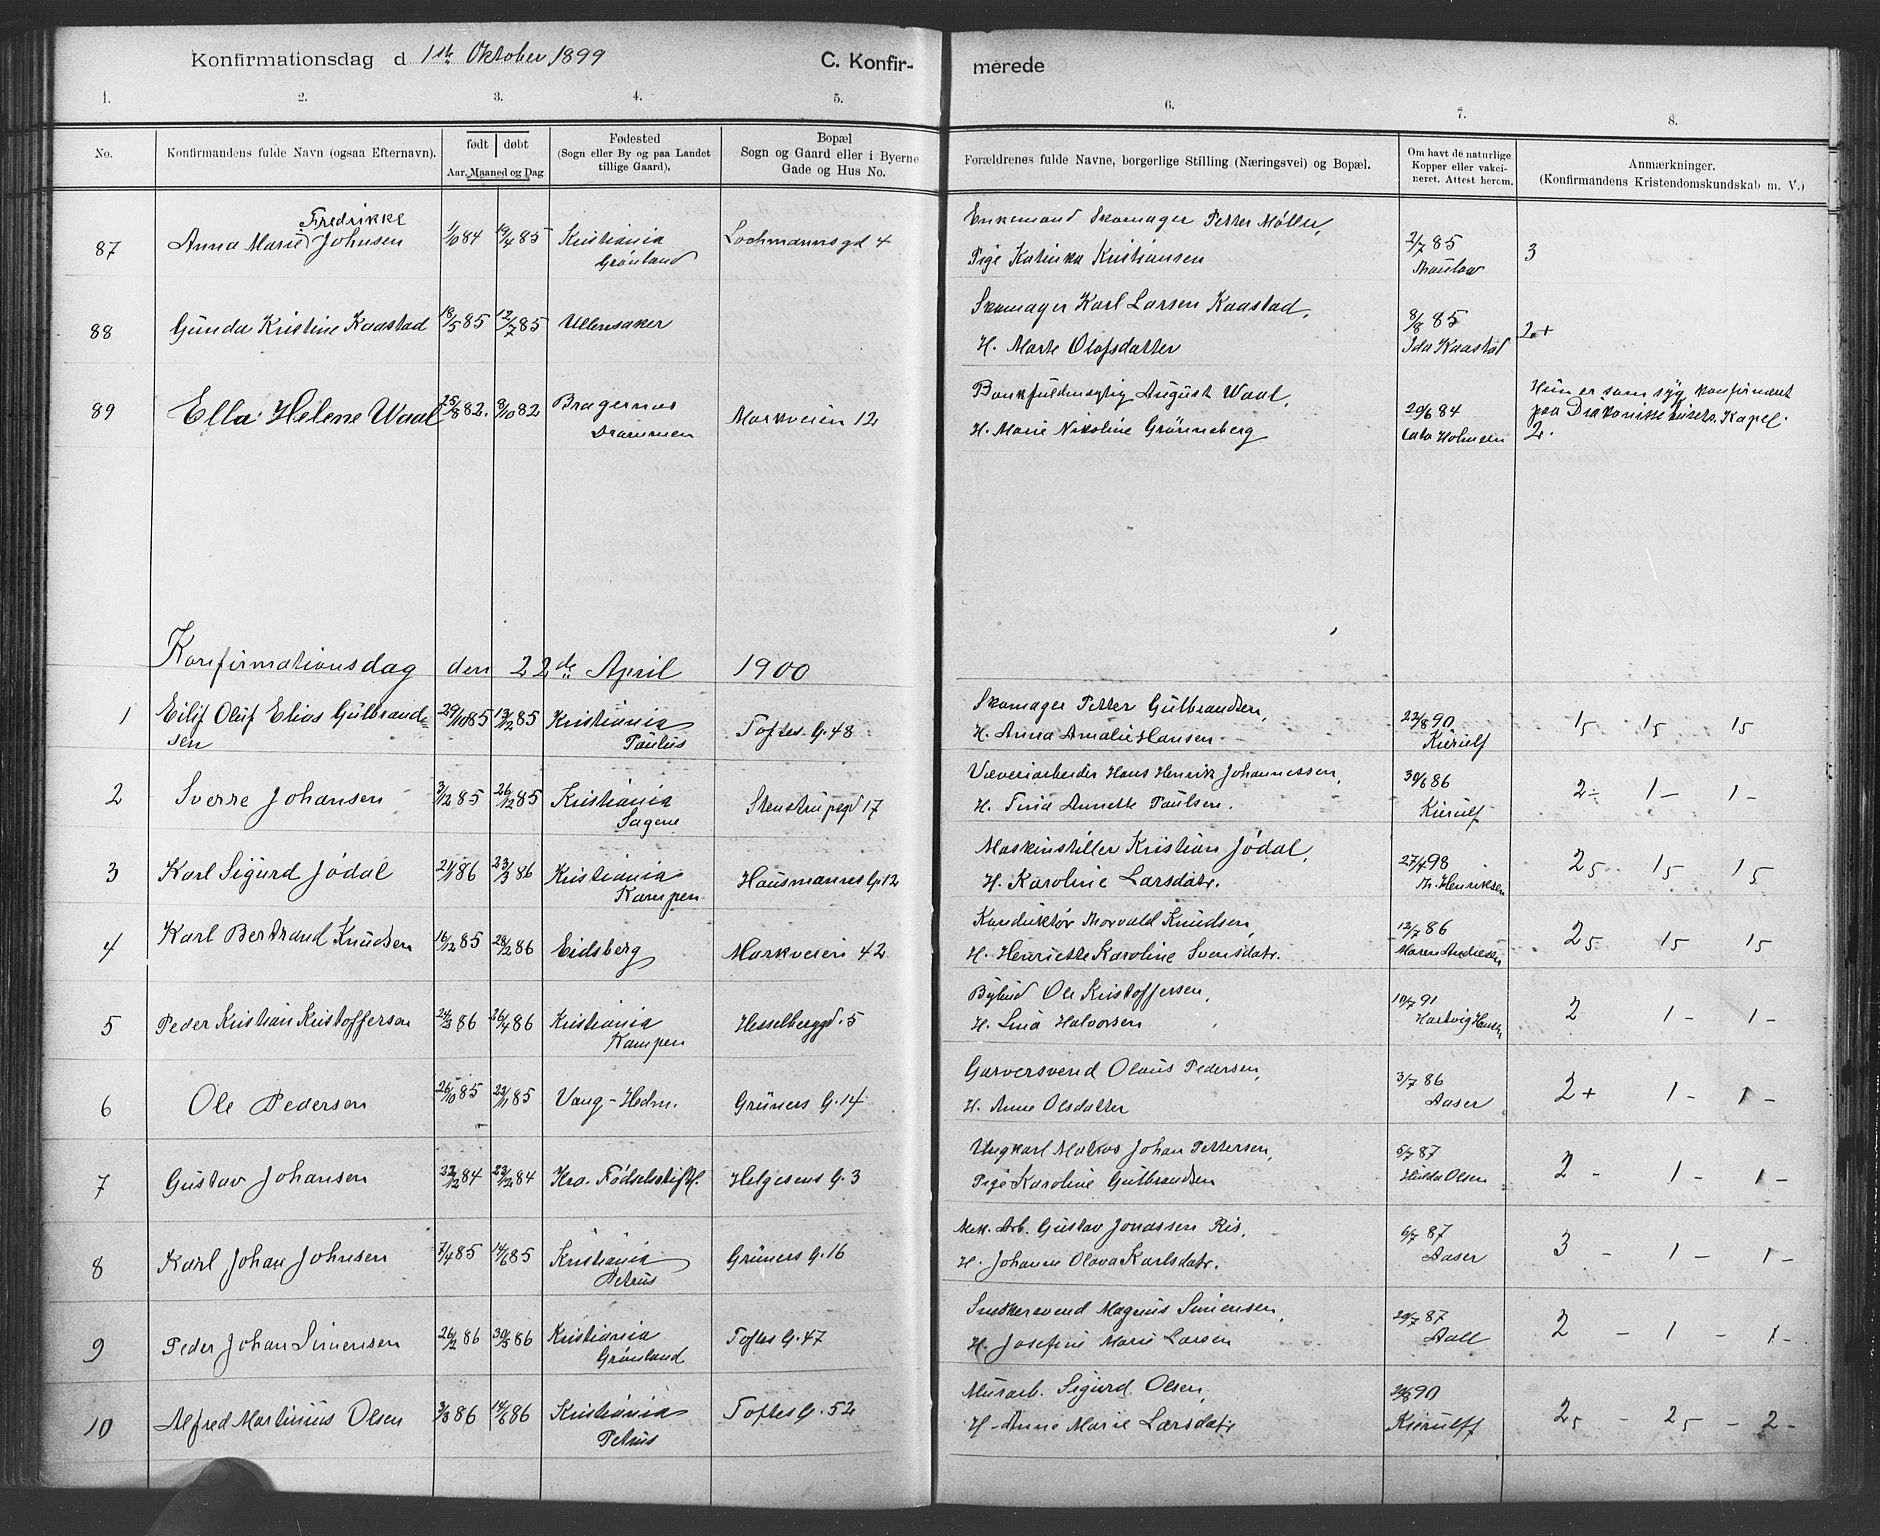 Konfirmationsdag d 1ste Oktober 1899 C. Konfir- merede
1. 2. 3. 4. 5. 6. 7. 8.
No.
Konfirmandens fulde Navn (ogsaa Efternavn).
født døbt
Aar, Maaned og Dag
Fødested
(Sogn eller By og paa Landet
tillige Gaard).
Bopæl
Sogn og Gaard eller i Byerne
Gade og Hus No.
Forældrenes fulde Navne, borgerlige Stilling (Næringsvei) og Bopæl.
Om havt de naturlige
Kopper eller vakci-
neret. Attest herom.
Anmærkninger.
(Konfirmandens Kristendomskundskab m. V.)
Fredrikke
87 Anna Marie Johnsen 84 19/4 85 Kristiania Lochmannsgd 4
Grønland
Enkemand Skomager Petter Møller,
Pige Katinka Kristiansen
2/7 85
3
88 Gunda Kristine Kaastad 18/5 85 12/7 85 Ullensaker
Skomager Karl Larsen Kaastad,
H. Marte Olafsdatter
8/8 85
Ida Kaastad
2+
89 Ella Helene Waal 25/8 82. 8/10 82 Bragernæs Markveien 12
Drammen
August Waal,
H. Marie Nikoline Grønneberg
20/6 84
Cato Holmsen
Hun er som syg konfirmeret
paa Kapel.
2.
Konfirmationsdag den 22de April 1900
1 Eilif Oluf Elias Gulbrand-
sen 29/10 85 13/12 85 Kristiania Toftes G. 48
Paulus
Skomager Petter Gulbrandsen,
H. Anna Amalie Hansen
22/8 90
Kierulf
15 15 15
2 Sverre Johansen 3/12 85 26/12 85 Kristiania Stenstrupgd 17
Sagene
Væveriarbeider Hans Henrik Johannessen,
H. Tina Annette Paulsen.
30/6 86
Kierulf
2- 1- 1-
3 Karl Sigurd Jødal 21/1 86 23/3 86 Kristiania Hausmanns G. 12
Kampen
Maskinstiller Kristian Jødal,
H. Karoline Larsdatr.
27/4 98
Th. Henriksen
25 15 15
4 Karl Bertrand Knudsen 16/12 85 28/2 86 Eidsberg Markveien 42
Konduktør Thorvald Knudsen,
H. Henriette Karoline Svensdatr.
12/7 86
Maren Andresen
25 15 15
5 Peder Kristian Kristoffersen 24/3 86 26/4 86 Kristiania Hesselberggd. 5
Kampen
Bybud Ole Kristoffersen,
H. Lina Halvorsen
10/7 91
Hartvig Hansen
2 1- 1-
6 Ole Pedersen 26/10 85 22/11 85 Vang-Hedm. Grüners G. 14
Garversvend Olaus Pedersen,
H. Anne Olsdatter
3/7 86
Aaser
2+ 1- 1-
7 Gustav Johansen 22/12 84 84 Kra. Fødselsstift. Helgesens G. 3
Ungkarl Johan Pettersen,
Pige Karoline Gulbrandsen
5/7 87
Hulda Olsen
2- 1- 1-
8 Karl Johan Johnsen 7/4 85 14/6 85 Kristiania Grüners G. 16
Petrus
Mek. Arb. Gustav Jonassen Ris,
H. Johanne Olava Karlsdatr.
6/7 87
Aaser
3- 1- 1-
9 Peder Johan Simensen 26/2 86 30/5 86 Kristiania Toftes G. 47
Grønland
Snedkersvend Magnus Simensen,
H. Josefine Marie Larsen
20/7 87
Aall
2- 1- 1-
10 Alfred Martinius Olsen 3/3 86 14/6 86 Kristiania Toftes G. 52
Petrus
Murarb. Sigurd Olsen,
H. Anne Marie Larsdatr
90
Kierulff
25- 25- 2-